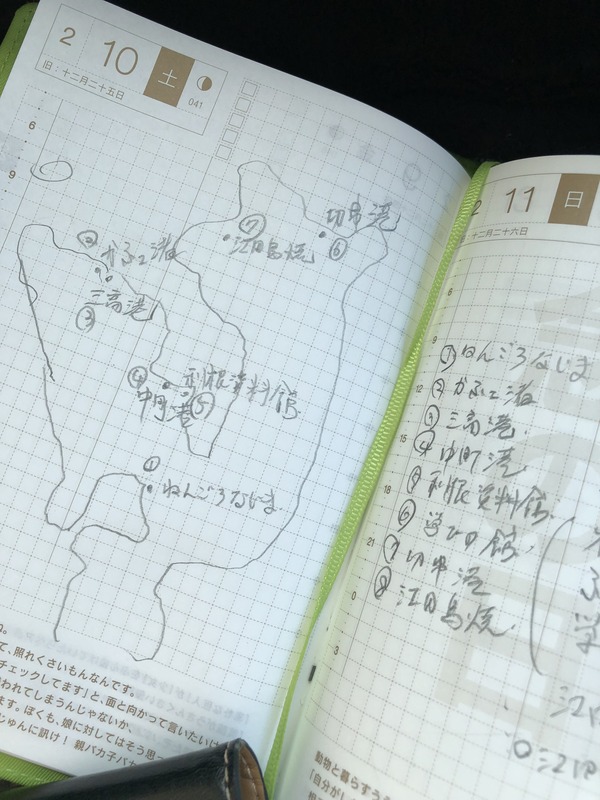 2 10 土
041
旧：十二月二十五日
6
9
切串港
⑦
江田島焼
⑥
②
かふぇ渚
三高港
③
④
利根資料館
中町港
⑤
①
ねんごろなじま
て、照れくさいもんなんです。
チェックしてます」と、面と向かって言いたいけ
われてしまうんじゃないか、
ます。ぼくも、娘に対してはそう思っ
じゅんに訊け！ 親バカ子バカ
2 11 日
十二月二十六日
6
9
①ねんごろなじま
12
②かふぇ渚
③三高港
15
④中町港
⑤利根資料館
18
⑥学びの館
21
⑦切串港
0
⑧江田島焼
3
学
江
動物と暮らすう
「自分が